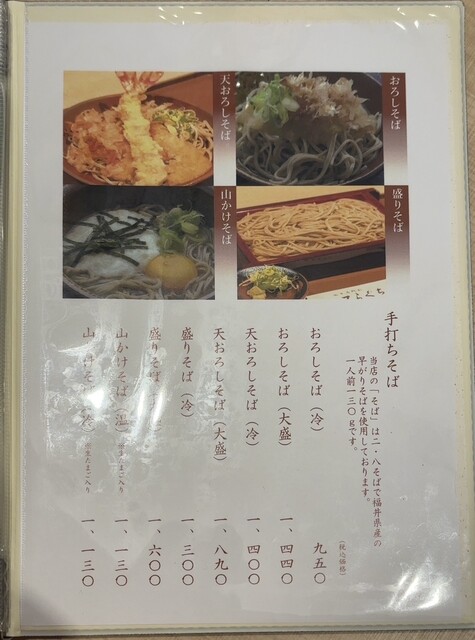 おろしそば
天おろしそば
盛りそば
山かけそば
手打ちそば
当店の「そば」は二・八そばで福井県産の
早がりそばを使用しております。
一人前一三〇gです。
(税込価格)
おろしそば(冷) 九五〇
おろしそば(大盛) 一、四四〇
天おろしそば(冷) 一、四〇〇
天おろしそば(大盛) 一、八九〇
盛りそば(冷) 一、三〇〇
盛りそば 一、六〇〇
山かけそば(温) ※生たまご入り 一、一三〇
山かけそば(冷) ※生たまご入り 一、一三〇